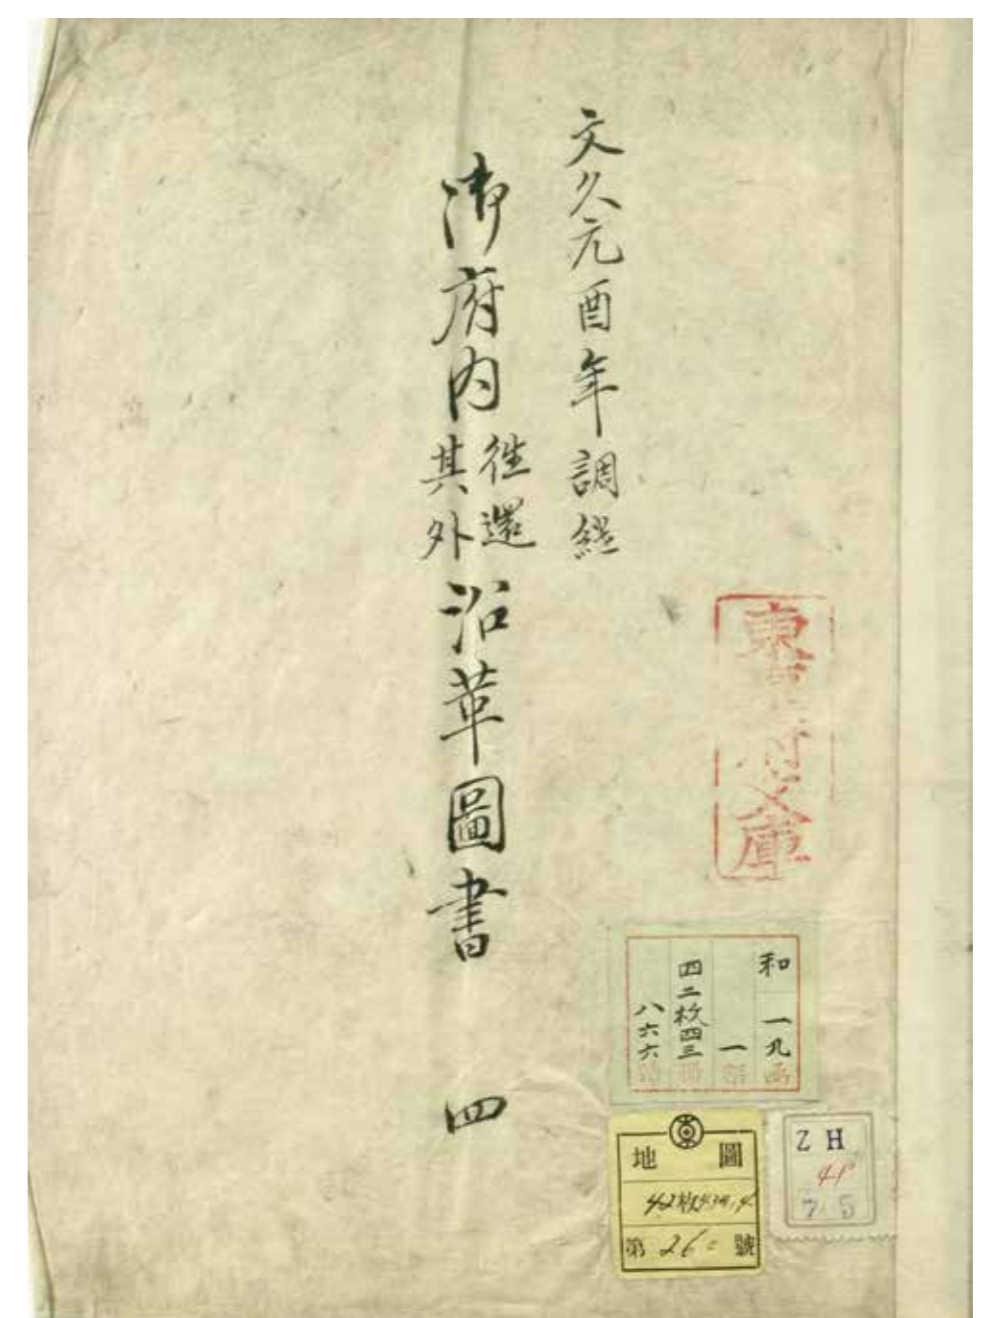 文久元酉年調
御府内往還其外沿革圖書 四
東 文庫
和 一九函
一部
四二枚四三
八六六號
地圖
42枚
第 26 號
ZH
41
75